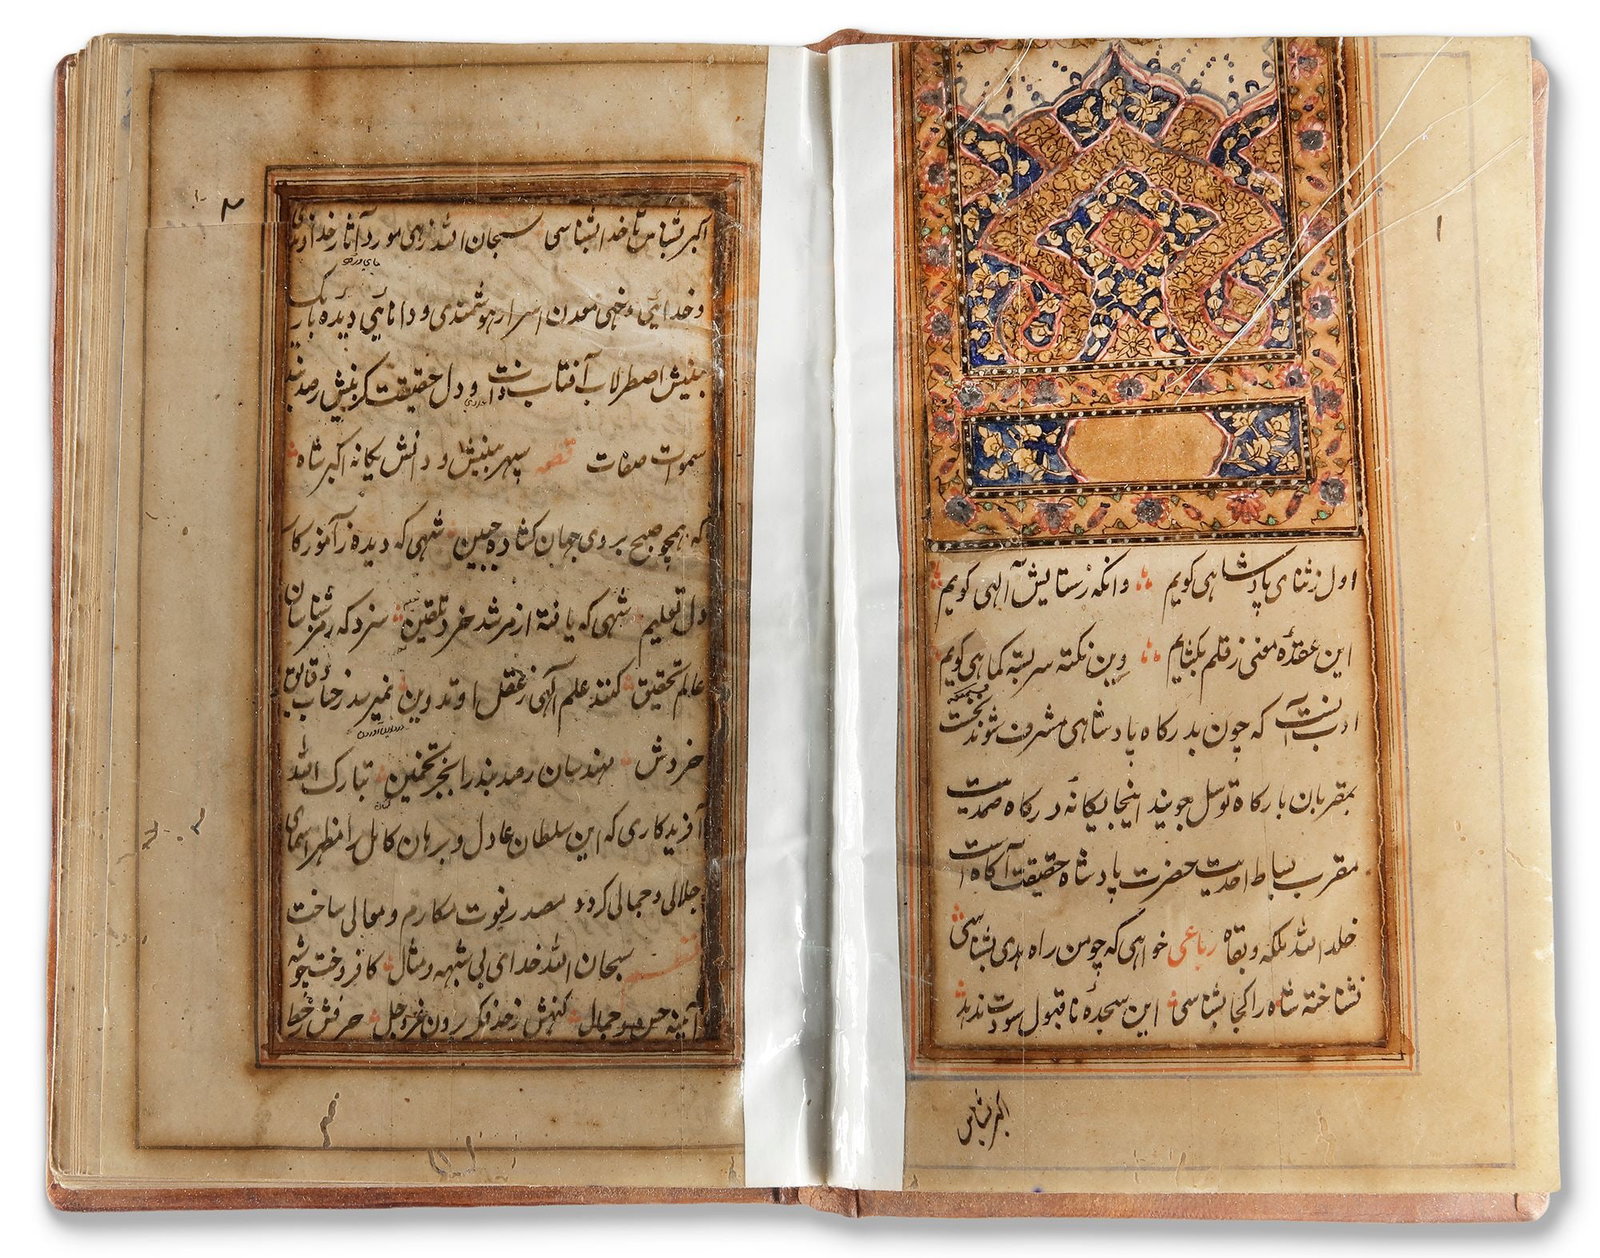 ۱
اول ز ثنای پادشاهی گویم وانگه ز ستایش آلهی گویم
این عقدهٔ معنی ز قلم بکشایم وین نکته سربسته کماهی گویم
ادب آنست که چون بدرگاه پادشاهی مشرف شوند نخست
بمقربان بارگاه توسل جویند اینجا یگانه درگاه صمدیت
مقرب بساط احدیت حضرت پادشاه حقیقت آگاه است
خلد الله ملکه و بقاه رباعی خواهی که چو من راه هدی بشناسی
نشناخته شاه را کجا بشناسی این سجده ناقبول سودت ندهد
اکبر بشناس
۲
اکبر بشناس تا خدا بشناسی سبحان الله زهی مورد آثار خداوندی
و خدائی و خهی معدن اسرار هوشمندی و دانائی دیده باریک
بینش اصطرلاب آفتاب ذات و دل حقیقت گزینش رصدبند
سموات صفات سپهر بینش و دانش یگانه اکبر شاه
که همچو صبح بروی جهان کشاده جبین شهی که دیده ز آموزگار
دل تعلیم شهی که یافته از مرشد خرد تلقین سزد که رمزشناسان
عالم تحقیق کنند علم آلهی ز عقل او تدوین نمیرسد ز حساب دقایق
خردش مهندسان رصدبند را بجز تخمین تبارک الله
آفریدکاری که این سلطان عادل و برهان کامل را مظهر اسمای
جلالی و جمالی کرد و مصدر نعوت مکارم و معالی ساخت
سبحان الله خدای بی شبهه و مثال کافروخت چو شه
آیینه حسن و جمال کنهش ز خد فکر برون عز و جل حرفش ز خط